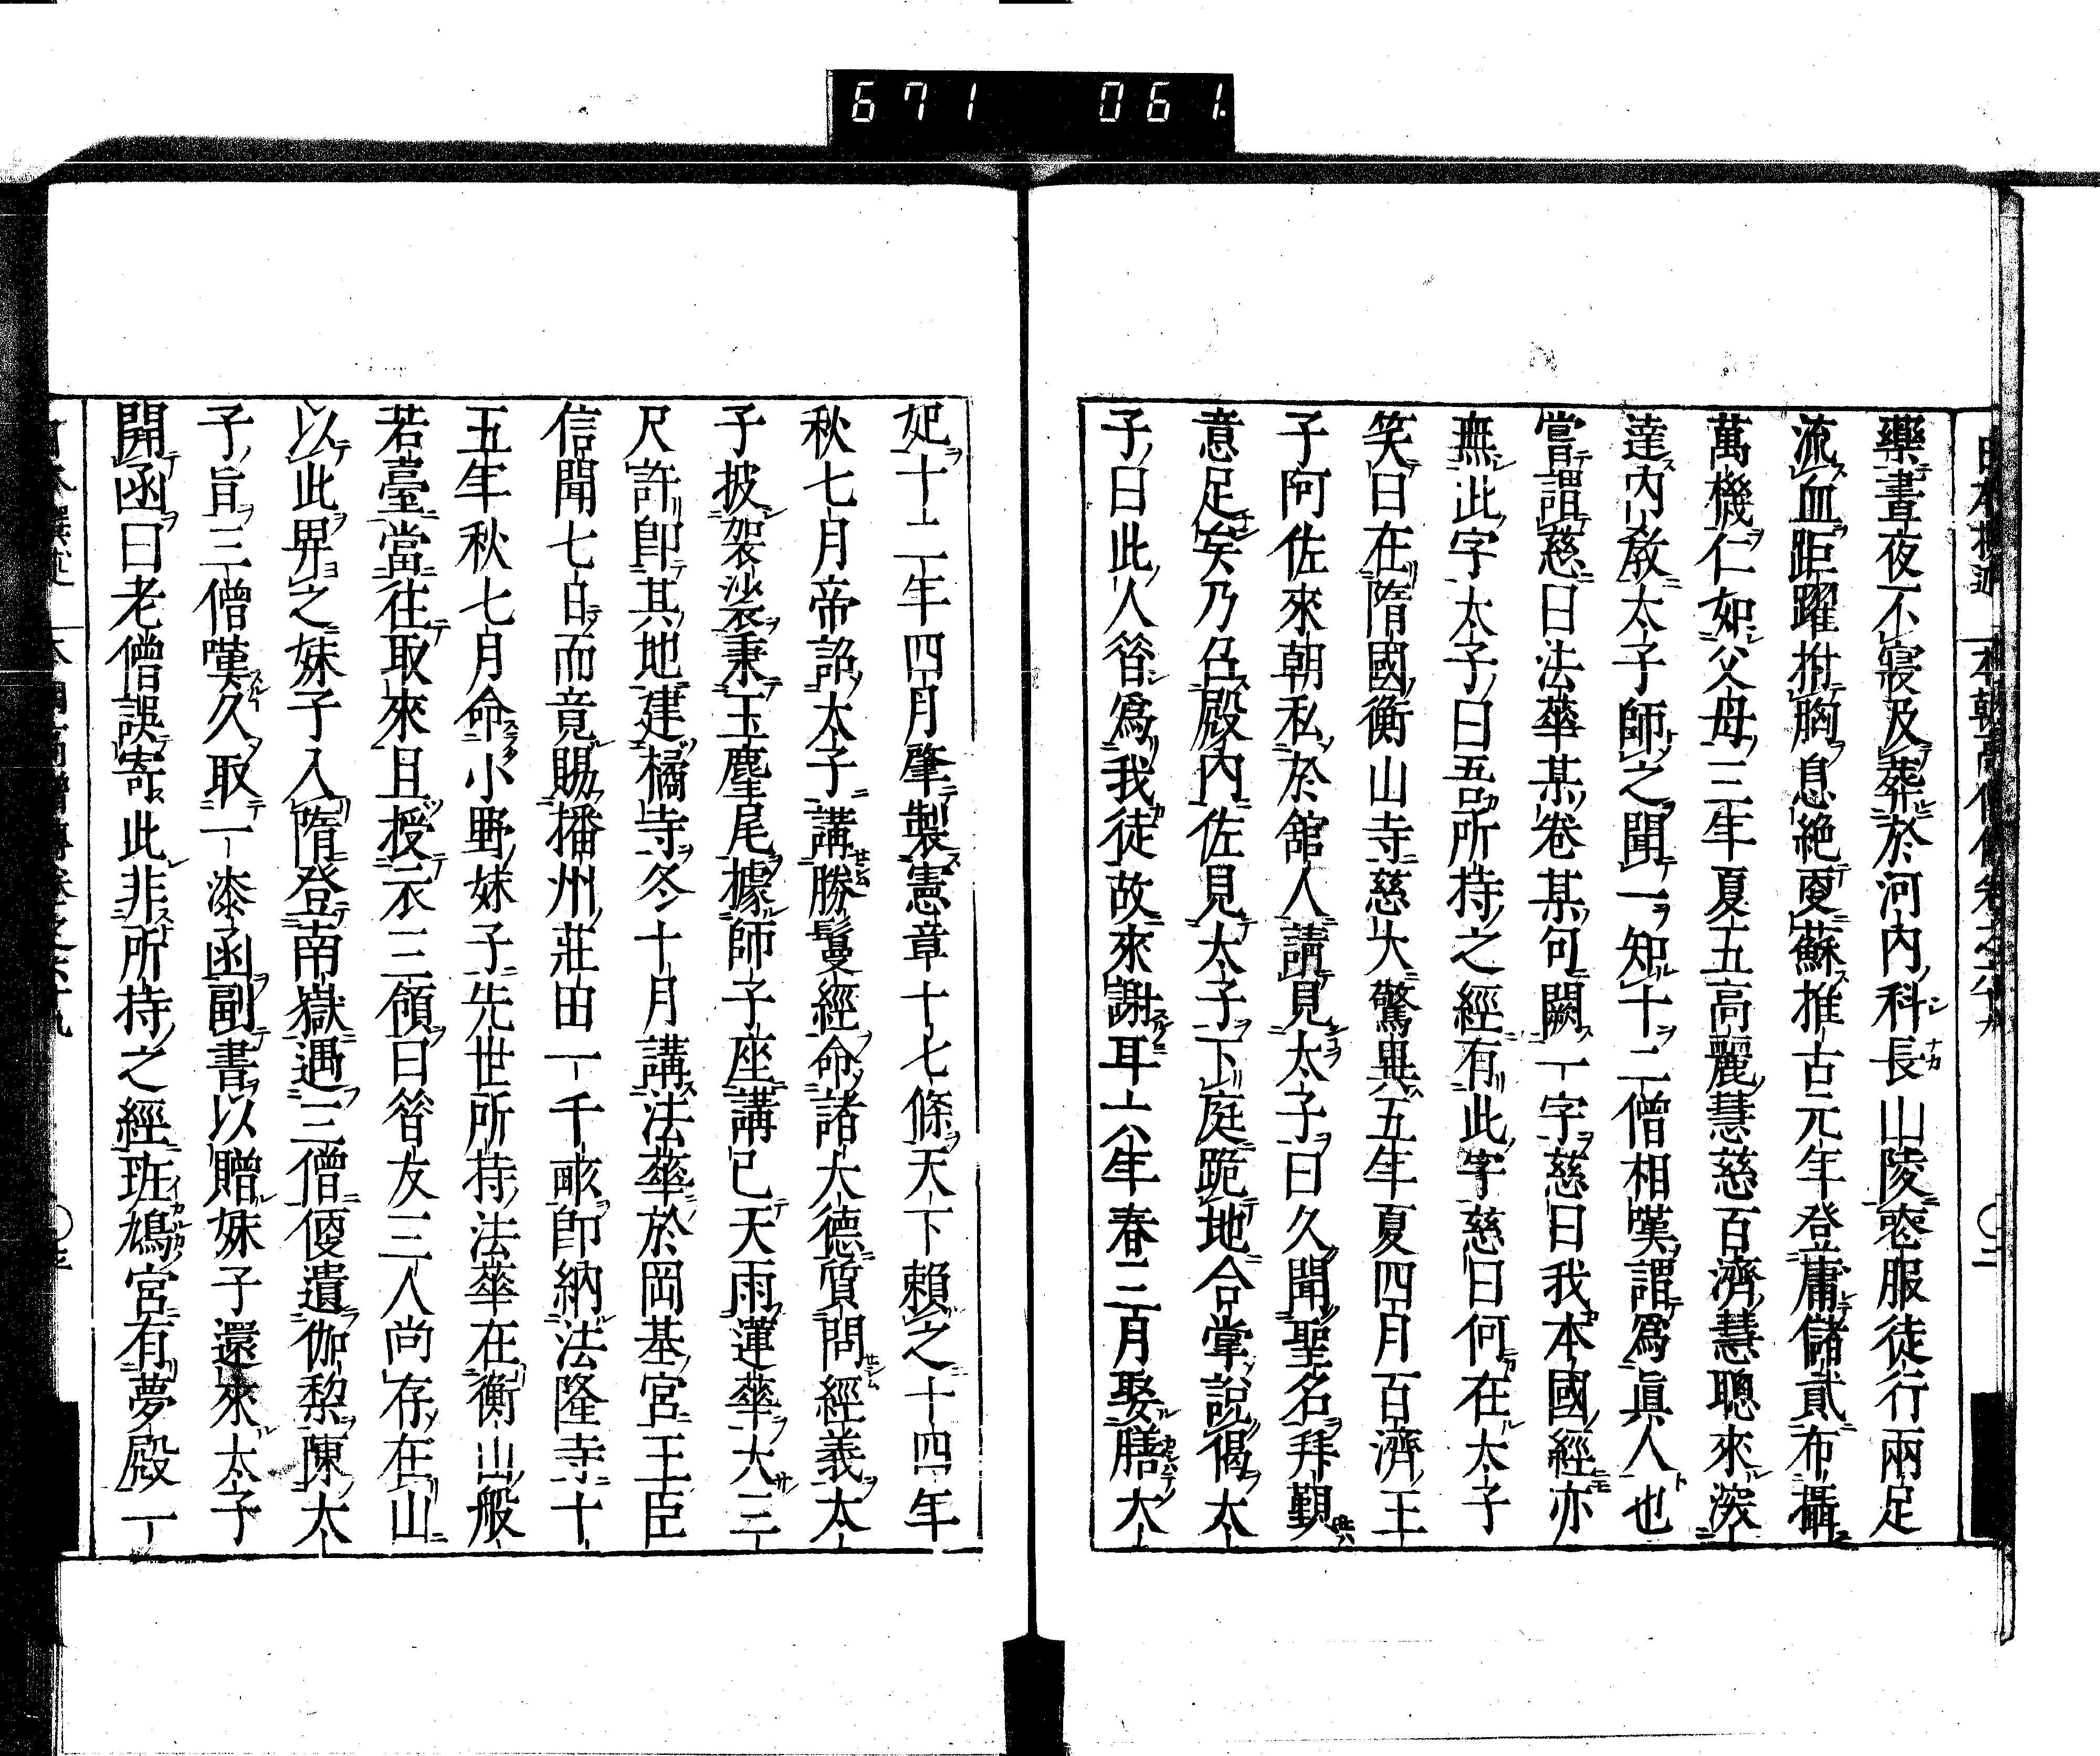 671 061
藥晝夜不寢及葬於河內科長山陵䘮服徒行兩足
流血距躍拊胸息絶更蘇推古元年登庸儲貳布攝
萬機仁如父母三年夏五高麗慧慈百濟慧聰來深
達內敎太子師之聞一知十二僧相嘆謂爲眞人也
嘗謂慈曰法華某卷某句闕一字慈曰我本國經亦
無此字太子曰吾所持之經有此字慈曰何在太子
笑曰在隋國衡山寺慈大驚異五年夏四月百濟王
子阿佐來朝私於舘人請見太子曰久聞聖名拜覲
意足矣乃召殿內佐見太子下庭跪地合掌說偈太
子曰此人昝爲我徒故來謝耳六年春三月娶膳大
妃十二年四月肇製憲章十七條天下賴之十四年
秋七月帝詔太子講勝鬘經命諸大德質問經義太
子披袈裟秉玉麈尾據師子座講已天雨蓮華大三
尺許卽其地建橘寺冬十月講法華於岡基宮王臣
信聞七日而竟賜播州莊田一千畝卽納法隆寺十
五年秋七月命小野妹子先世所持法華在衡山般
若臺當往取來且授衣三領曰昝友三人尚存在山
以此畀之妹子入隋登南嶽遇三僧便遺伽黎陳太
子旨三僧嘆久取一漆函副書以贈妹子還來太子
開函曰老僧誤寄此非所持之經班鳩宮有夢殿一